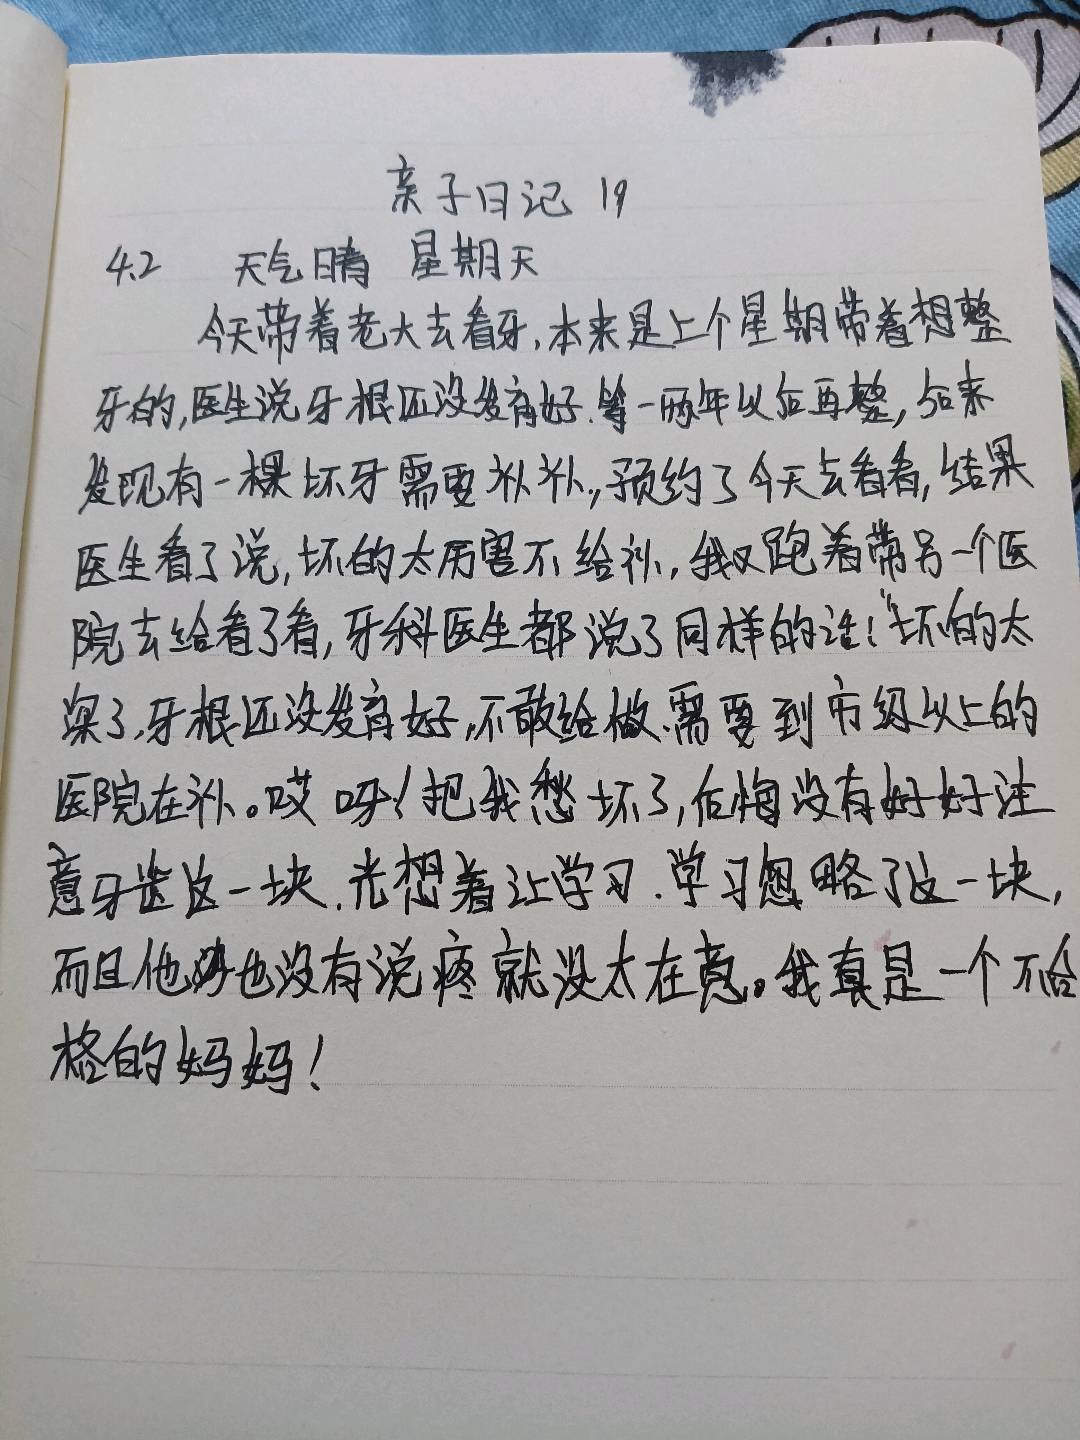 亲子日记 19
4.2 天气晴 星期天
今天带着老大去看牙,本来是上个星期带着想整
牙的,医生说牙根还没发育好.等一两年以后再整,后来
发现有一棵坏牙需要补补,,预约了今天去看看,结果
医生看了说,坏的太厉害不给补,我又跑着带另一个医
院去给看了看,牙科医生都说了同样的话!"坏的太
深了,牙根还没发育好,不敢给做.需要到市级以上的
医院在补。哎呀!把我愁坏了,后悔没有好好注
意牙齿这一块.光想着让学习.学习忽略了这一块,
而且他也没有说疼就没太在意。我真是一个不合
格的妈妈!